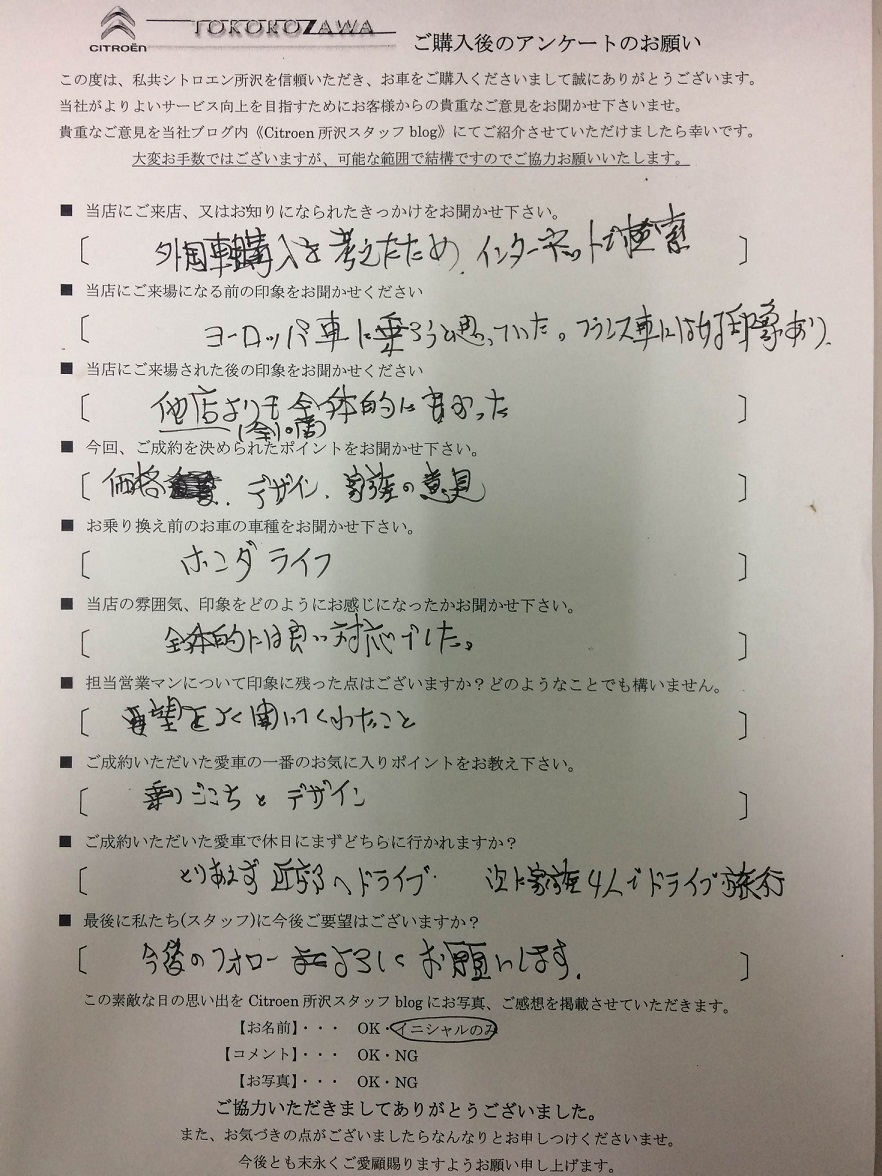 CITROËN
TOKOROZAWA
ご購入後のアンケートのお願い
この度は、私共シトロエン所沢を信頼いただき、お車をご購入くださいまして誠にありがとうございます。
当社がよりよいサービス向上を目指すためにお客様からの貴重なご意見をお聞かせ下さいませ。
貴重なご意見を当社ブログ内《Citroen 所沢スタッフ blog》にてご紹介させていただけましたら幸いです。
大変お手数ではございますが、可能な範囲で結構ですのでご協力お願いいたします。
■ 当店にご来店、又はお知りになられたきっかけをお聞かせ下さい。
〔 外国車購入を考えたため、インターネットで検索 〕
■ 当店にご来場になる前の印象をお聞かせください
〔 ヨーロッパ車に乗ろうと思っていた。フランス車には好印象あり。
■ 当店にご来場された後の印象をお聞かせください
〔 他店よりも全体的に良かった 〕
■ 今回、ご成約を決められたポイントをお聞かせ下さい。
〔 価格、デザイン、家族の意見 〕
■ お乗り換え前のお車の車種をお聞かせ下さい。
〔 ホンダ ライフ 〕
■ 当店の雰囲気、印象をどのようにお感じになったかお聞かせ下さい。
〔 全体的には良い対応でした。 〕
■ 担当営業マンについて印象に残った点はございますか？どのようなことでも構いません。
〔 要望をよく聞いてくれたこと 〕
■ ご成約いただいた愛車の一番のお気に入りポイントをお教え下さい。
〔 乗りごこちとデザイン 〕
■ ご成約いただいた愛車で休日にまずどちらに行かれますか？
〔 とりあえず近場へドライブ 次に家族4人でドライブ旅行
■ 最後に私たち(スタッフ)に今後ご要望はございますか？
〔 今後のフォローよろしくお願いします。 〕
この素敵な日の思い出を Citroen 所沢スタッフ blog にお写真、ご感想を掲載させていただきます。
【お名前】・・・ OK・イニシャルのみ
【コメント】・・・ OK・NG
【お写真】・・・ OK・NG
ご協力いただきましてありがとうございました。
また、お気づきの点がございましたらなんなりとお申しつけくださいませ。
今後とも末永くご愛顧賜りますようお願い申し上げます。